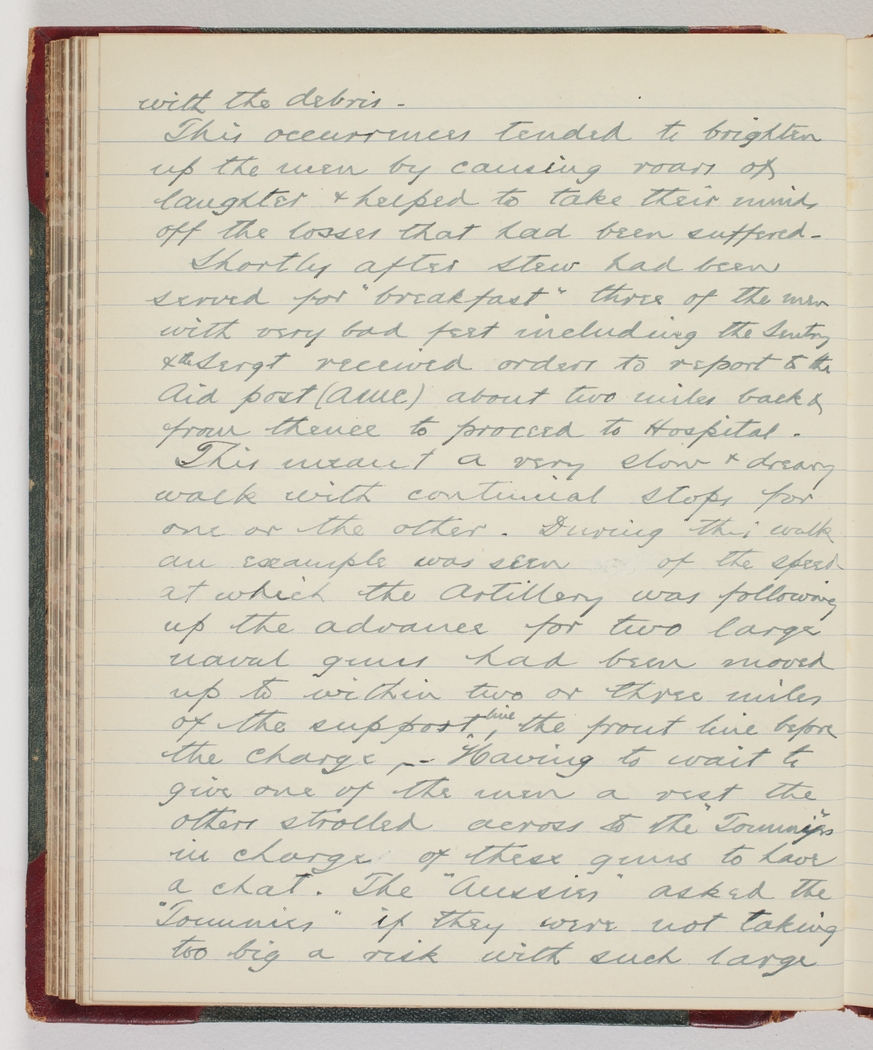 with the debris -
This occurrences tended to brighten
up the men by causing roars of
laughter & helped to take their minds
off the losses that had been suffered -
Shortly after stew had been
served for "breakfast" three of the men
with very bad feet including the Sentry
& the Sergt received orders to report to the
Aid post (AMC) about two miles back &
from thence to proceed to Hospital.
This meant a very slow & dreary
walk with continual stops for
one or the other. During this walk
an example was seen of the speed
at which the Artillery was following
up the advance for two large
naval guns had been moved
up to within two or three miles
of the support line, the front line before
the charge, - Having to wait to
give one of the men a rest the
others strolled across to the "Tommy's"
in charge of these guns to have
a chat. The "Aussies" asked the
"Tommies" if they were not taking
too big a risk with such large